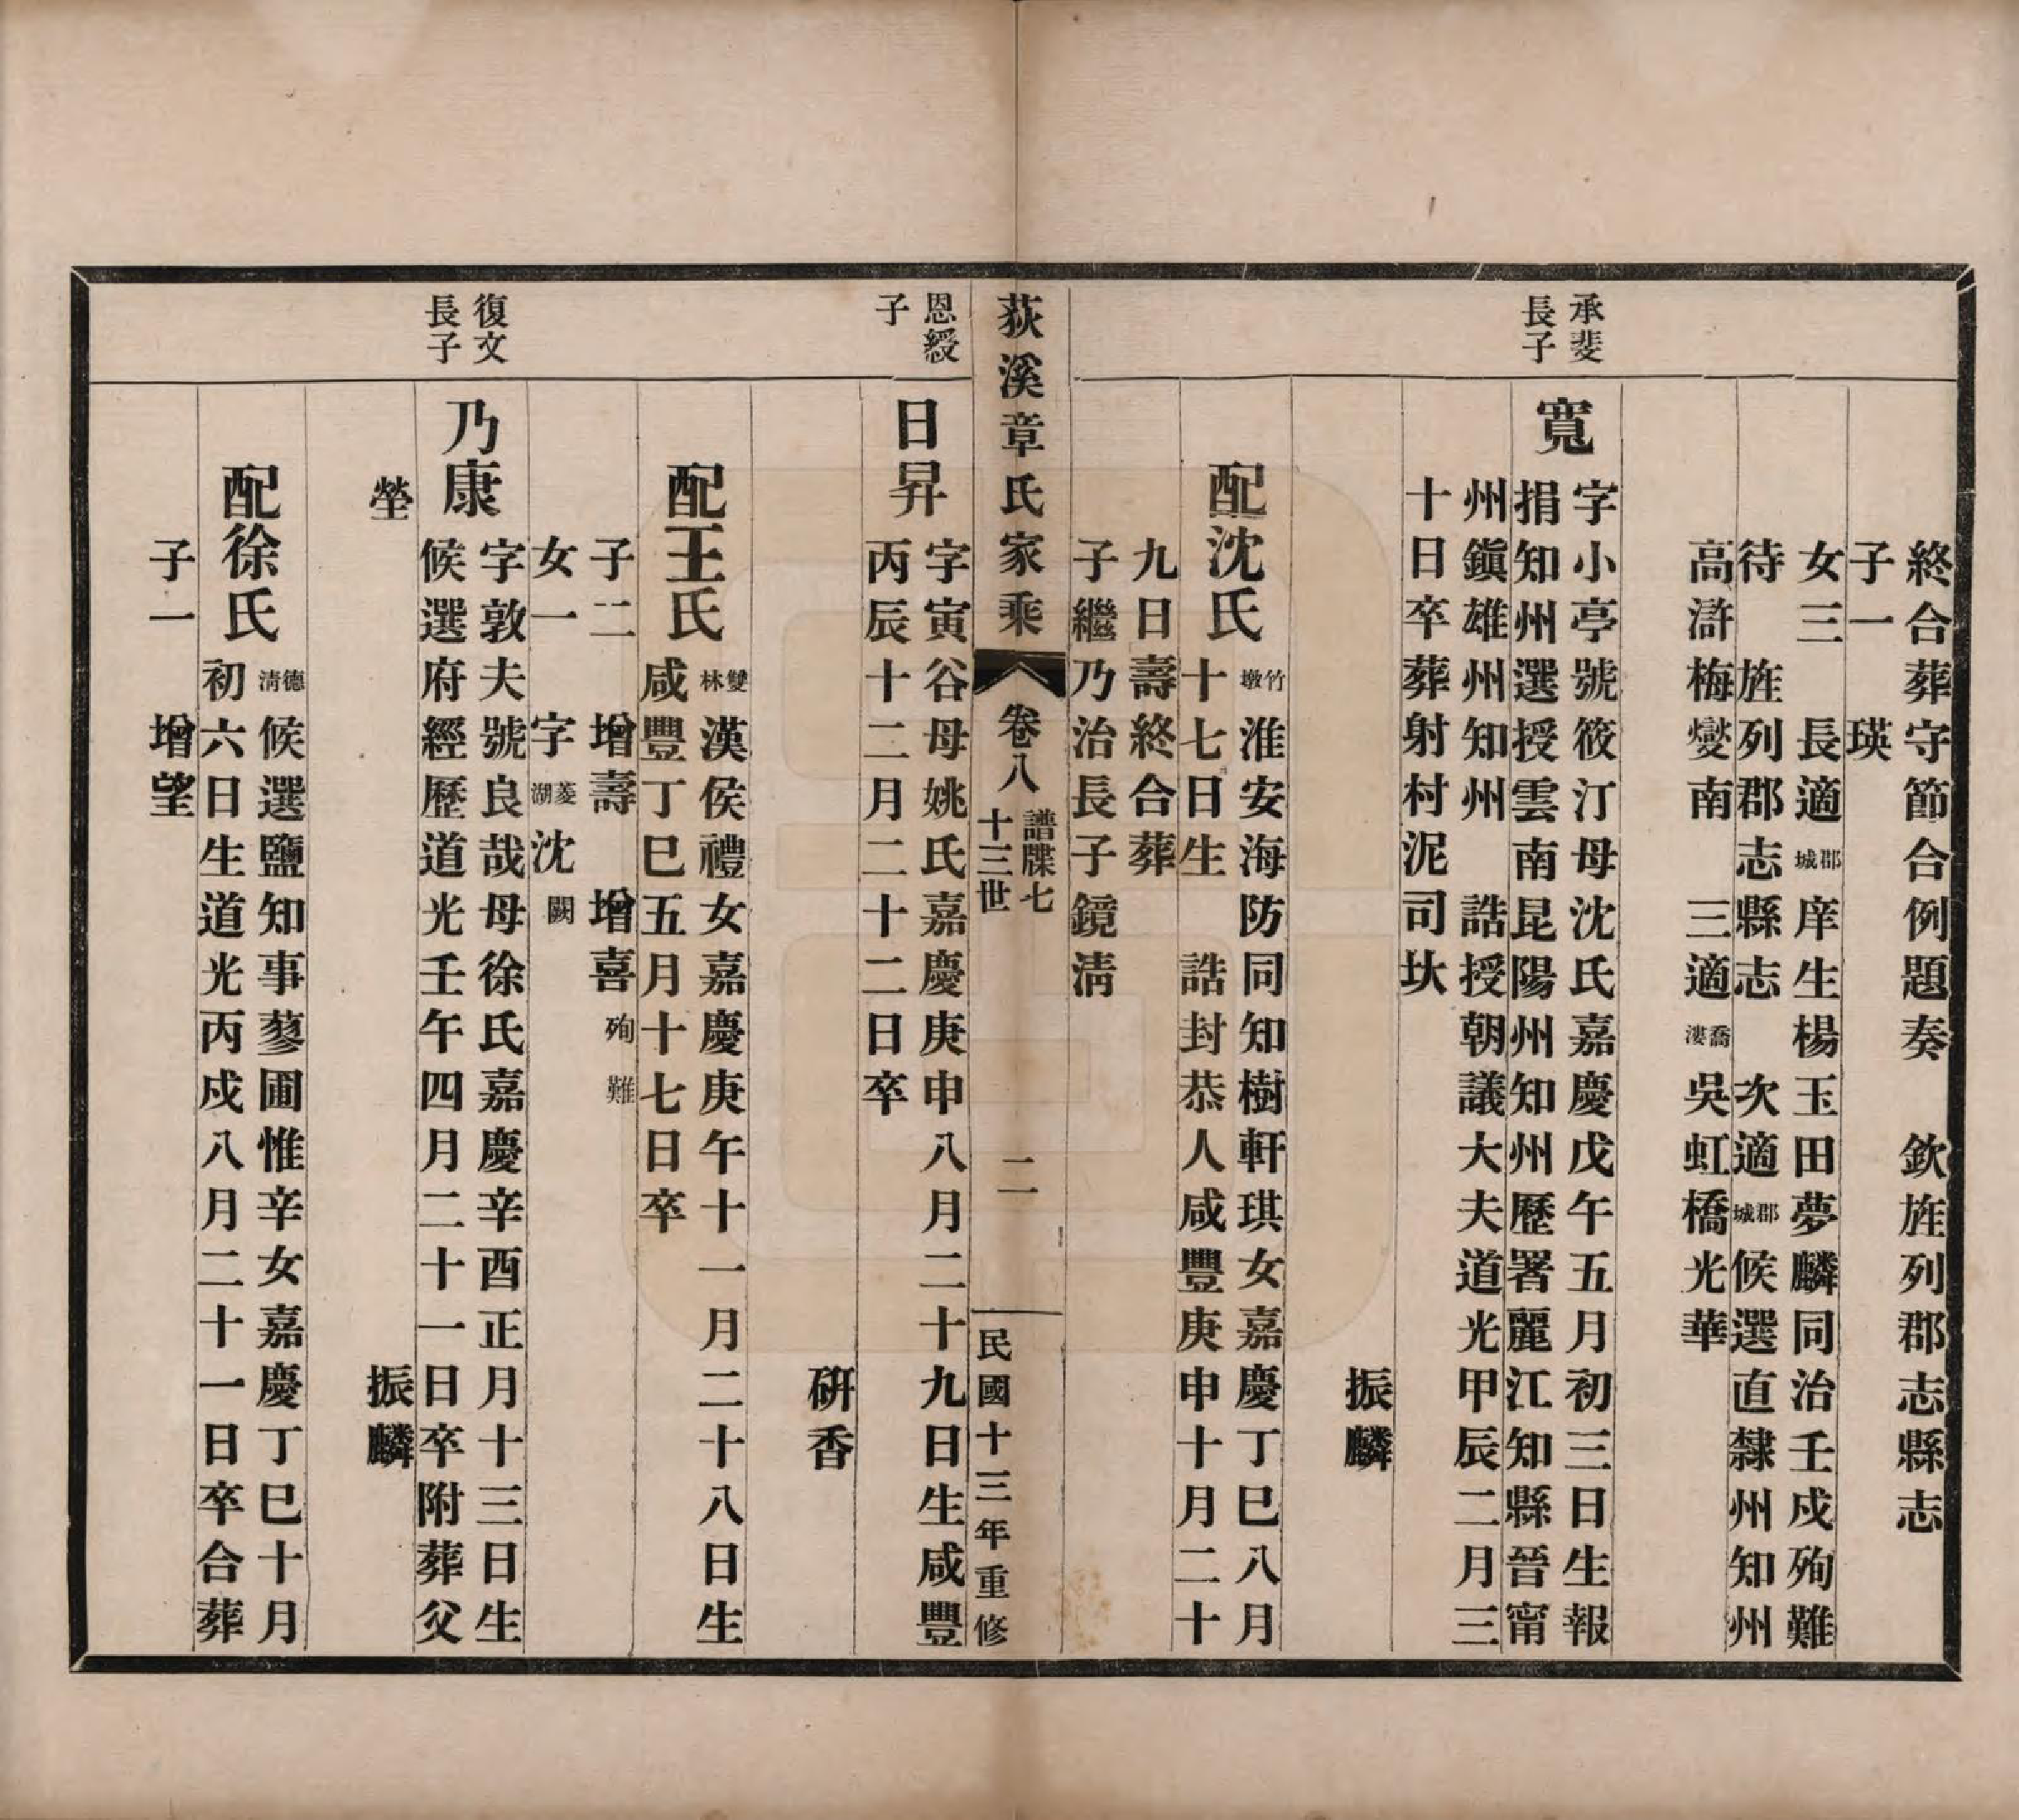 終合葬守節合例題奏　欽旌列郡志縣志
子一　瑛
女三　長適郡城庠生楊玉田夢麟同治壬戌殉難
待　旌列郡志縣志　次適郡城候選直隸州知州
高滸梅燮南　三適喬漊吳虹橋光華
承斐
長子
寬
字小亭號筱汀母沈氏嘉慶戊午五月初三日生報
捐知州選授雲南昆陽州知州歷署麗江知縣晉甯
州鎭雄州知州　誥授朝議大夫道光甲辰二月三
十日卒葬射村泥司坎
振麟
配沈氏
竹墩淮安海防同知樹軒琪女嘉慶丁巳八月
十七日生　誥封恭人咸豐庚申十月二十
九日壽終合葬
子繼乃治長子鏡清
荻溪章氏家乘
卷八
譜牒七
十三世
二
民國十三年重修
恩綬
子
日昇
字寅谷母姚氏嘉慶庚申八月二十九日生咸豐
丙辰十二月二十二日卒
硏香
配王氏
雙林漢侯禮女嘉慶庚午十一月二十八日生
咸豐丁巳五月十七日卒
子二　增壽　增喜殉難
女一　字菱湖沈闕
復文
長子
乃康
字敦夫號良哉母徐氏嘉慶辛酉正月十三日生
候選府經歷道光壬午四月二十一日卒附葬父
塋
振麟
配徐氏
德清候選鹽知事蓼圃惟辛女嘉慶丁巳十月
初六日生道光丙戌八月二十一日卒合葬
子一　增望